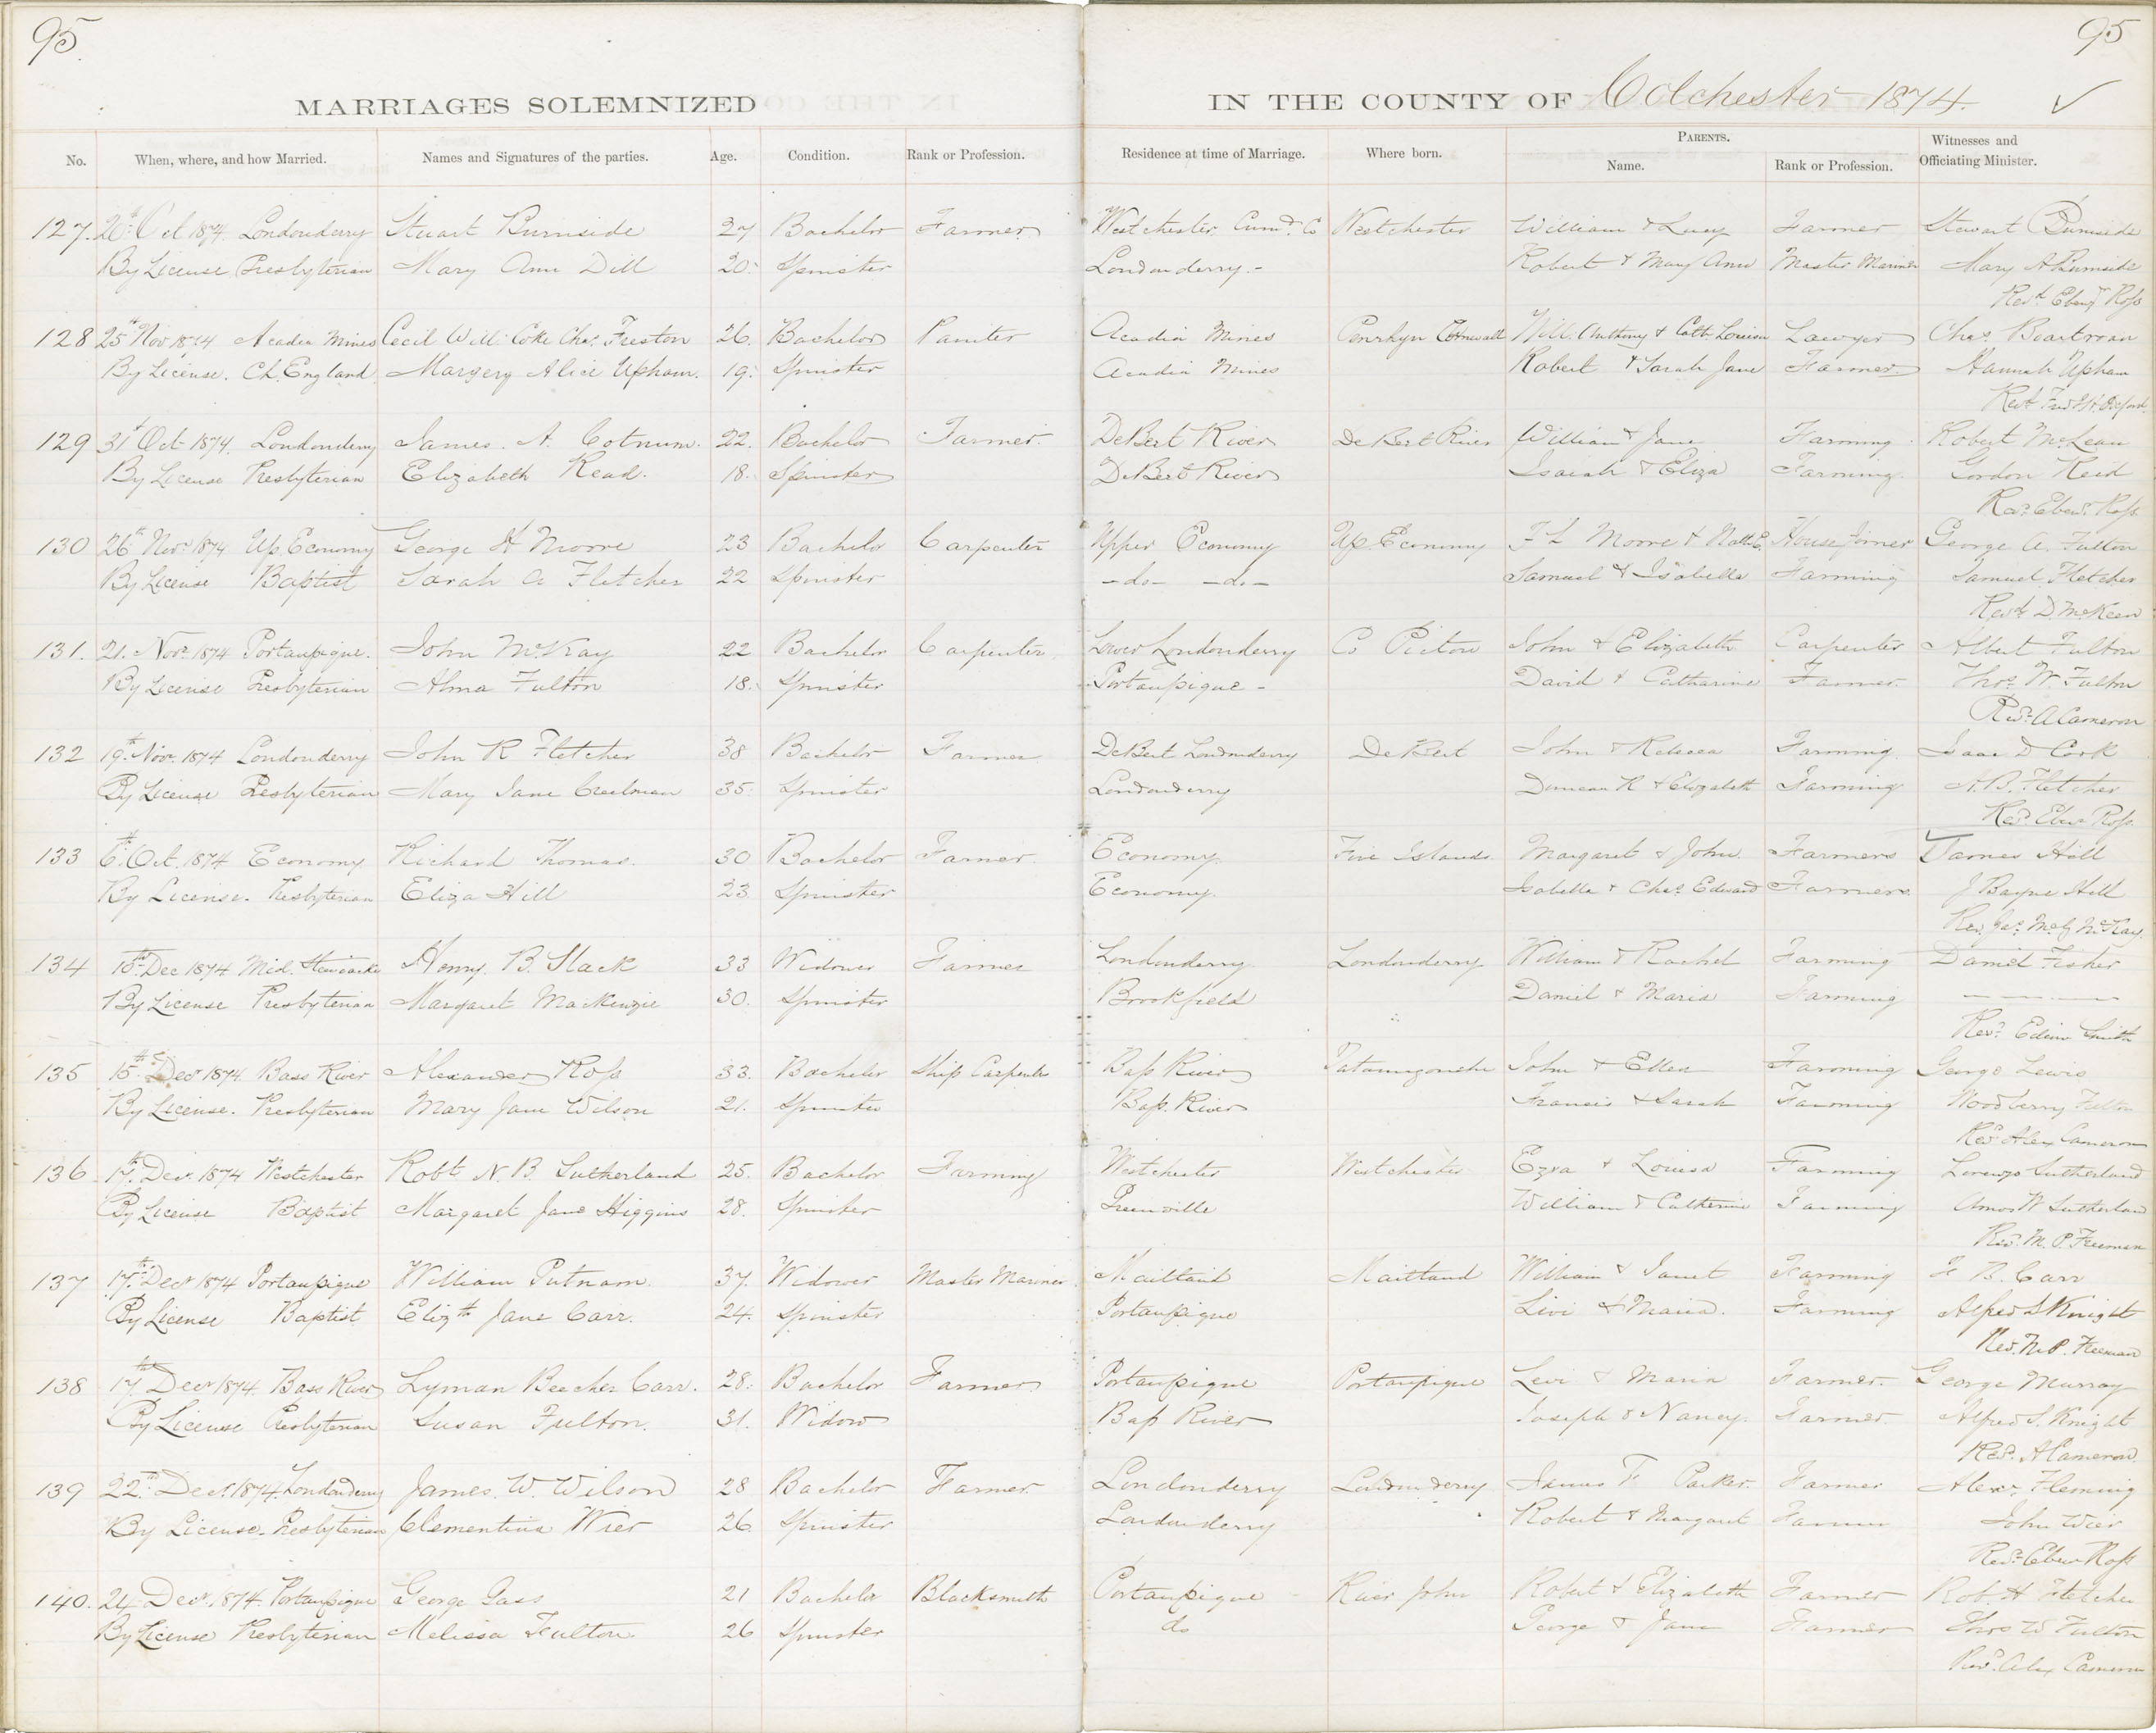 95. 95
MARRIAGES SOLEMNIZED IN THE COUNTY OF Colchester 1874. ✓
No. When, where, and how Married. Names and Signatures of the parties. Age. Condition. Rank or Profession. Residence at time of Marriage. Where born. PARENTS. Name. Rank or Profession. Witnesses and Officiating Minister.
127. Oct 1874. Londonderry Stuart Burnside 27 Bachelor Farmer Westchester Cumd. Co Westchester William & Lucy Farmer Stewart Burnside
By License Presbyterian Mary Ann Dill 20. Spinster Londonderry.- Robert & Mary Ann Master Mariner Mary A Burnside
Revd. Ebenr Ross
128 25th Nov 1874 Acadia Mines Cecil Will. Coke Chas. Freston 26. Bachelor Painter Acadia Mines Penrhyn Cornwall Will. Anthony & Cath. Louisa Lawyer Chas.
By License. Ch. England Margery Alice Upham. 19. Spinster Acadia Mines Robert & Sarah Jane Farmer. Hannah Upham
Revd
129 31st Oct 1874. Londonderry James. A. Cotnum. 22. Bachelor Farmer. DeBert River De Bert River William & Jane Farming. Robert McLean
By License Presbyterian Elizabeth Read. 18. Spinster DeBert River Isaiah & Eliza Farming. Gordon Reid
Rev. Ebenr. Ross
130 26th Novr 1874 Up. Economy George H Moore 23 Bachelor Carpenter Upper Economy Up. Economy F L Moore & House Joiner George A. Fulton
By License Baptist Sarah A Fletcher 22 Spinster -do- -do- Samuel & Isabella Farming Samuel Fletcher
Revd D. McKeen
131. 21. Novr. 1874 Portaupique. John McKay 22 Bachelor Carpenter Lower Londonderry Co Pictou John & Elizabeth Carpenter Albert Fulton
By License Presbyterian Alma Fulton 18. Spinster Portaupique - David & Catharine Farmer. Thos. W. Fulton
Revd. A Cameron
132 19th Novr. 1874 Londonderry John R Fletcher 38 Bachelor Farmer DeBert Londonderry De Bert John & Rebecca Farming. Isaac D Cook
By License Presbyterian Mary Jane Creelman 35. Spinster Londonderry Duncan R & Elizabeth Farming A. B. Fletcher
Revd. Ebenr Ross
133 6th. Oct. 1874 Economy Richard Thomas. 30 Bachelor Farmer. Economy. Five Islands Margaret & John Farmers James Hill
By License. Presbyterian Eliza Hill 23. Spinster Economy. Isabella & Chas. Edward Farmers. J Bayne Hill
Rev. Jas. McG McKay
134 Dec 1874 Mid. Stewiacke Henry. B. Slack 33 Widower Farmer Londonderry Londonderry William & Rachel Farming Daniel Fisher
By License Presbyterian Margaret MacKenzie 30. Spinster Brookfield Daniel & Maria Farming — — — —
Revd. Edwin Smith
135 15th. Decr 1874. Bass River Alexander Ross 33. Bachelor Ship Carpenter Bass River Tatamagouche John & Ellen Farming George Lewis
By License. Presbyterian Mary Jane Wilson 21. Spinster Bass River Francis & Sarah Farming Woodberry Fulton
Revd. Alex Cameron
136 17th. Decr. 1874 Westchester Robt. N. B. Sutherland 25. Bachelor Farming Westchester Westchester Ezra & Louisa Farming Lorenzo Sutherland
By License Baptist Margaret Jane Higgins 28. Spinster Greenville William & Catherine Farming Amos W Sutherland
Revd. M. P. Freeman
137 17th. Decr 1874 Portaupique William Putnam. 37. Widower Master Mariner Maitland Maitland William & Janet Farming F. B. Carr
By License Baptist Elizth Jane Carr. 24. Spinster Portaupique Levi & Maria. Farming Alfred S Knight
Rev. M. P. Freeman
138 17th Decr 1874. Bass River Lyman Beecher Carr. 28. Bachelor Farmer Portaupique Portaupique Levi & Maria Farmer. George Murray
By License Presbyterian Susan Fulton. 31. Widow Bass River Joseph & Nancy. Farmer. Alfred S. Knight
Revd. A Cameron.
139 22nd. Decr. 1874. Londonderry James. W. Wilson 28 Bachelor Farmer. Londonderry Londonderry James F Parker. Farmer Alexr. Fleming
By License. Presbyterian Clementina Wier 26. Spinster Londonderry Robert & Margaret Farmer John Wier
Revd. Ebenr Ross
140. 24 Decr. 1874. Portaupique George Gass 21 Bachelor Blacksmith Portaupique River John Robert & Elizabeth Farmer Rob. H Fletcher
By License Presbyterian Melissa Fulton. 26 Spinster do George & Jane Farmer Thos W Fulton
Revd. Alex Cameron